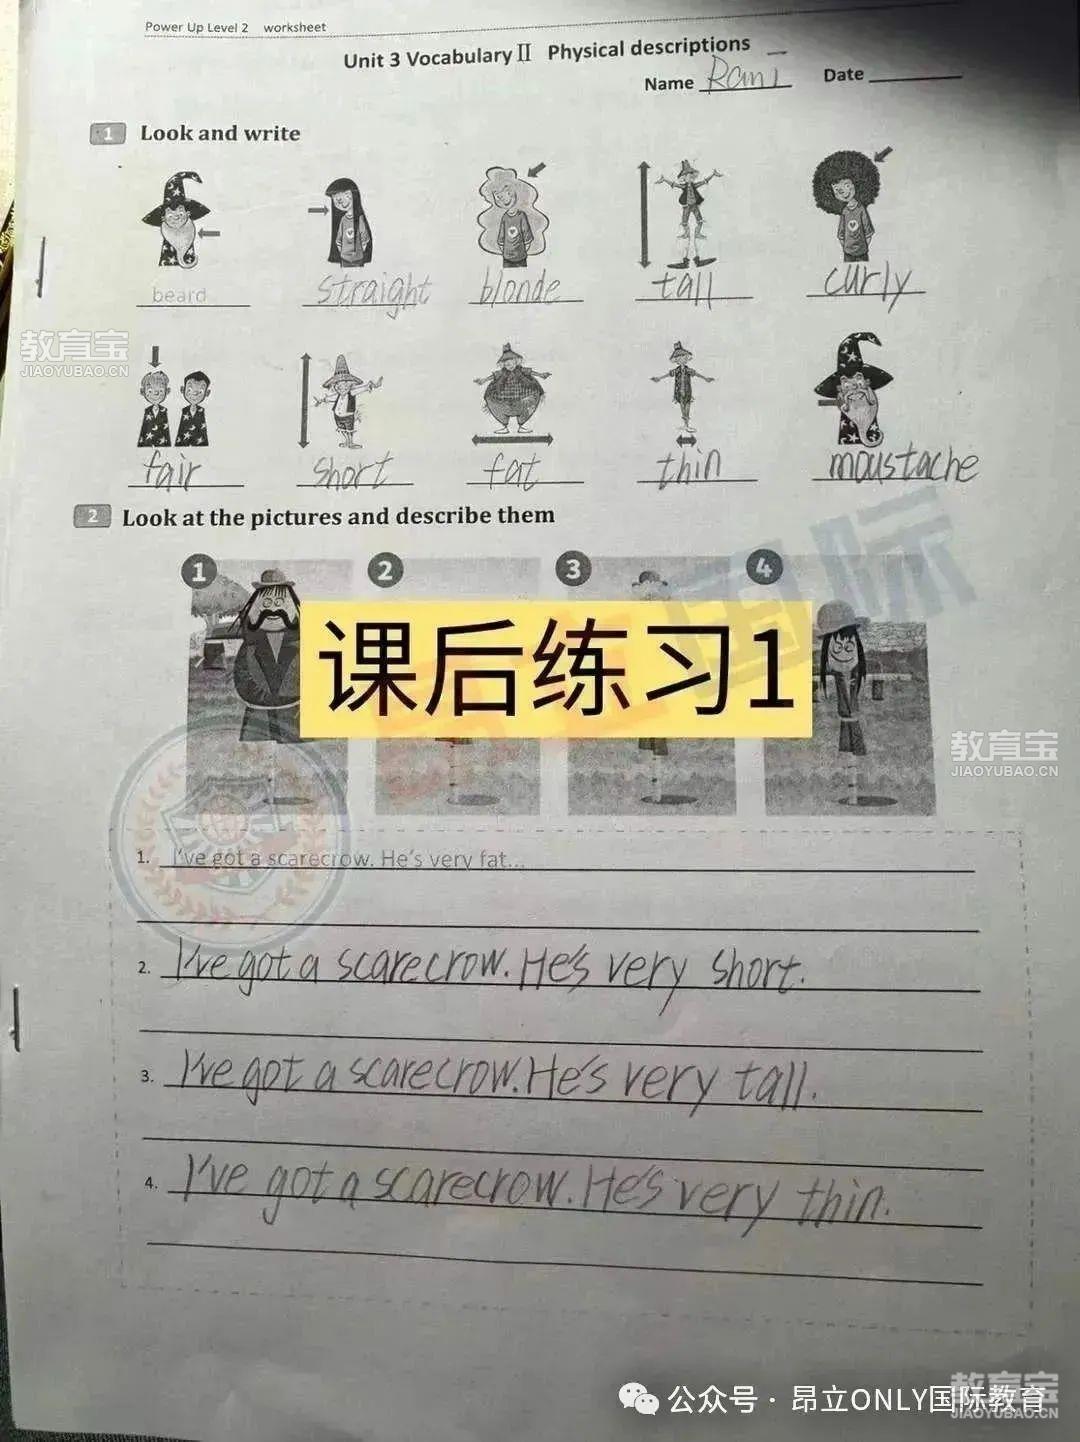 Power Up Level 2 worksheet
Unit 3 Vocabulary II Physical descriptions
Name Rani Date
1 Look and write
beard straight blonde tall curly
教育宝
JIAOYUBAO.CN
fair short fat thin moustache
2 Look at the pictures and describe them
1 2 3 4
国际
课后练习1
教育宝
JIAOYUBAO.CN
1. I've got a scarecrow. He's very fat...
2. I've got a scarecrow. He's very short.
3. I've got a scarecrow. He's very tall.
4. I've got a scarecrow. He's very thin.
教育宝
JIAOYUBAO.CN
公众号 · 昂立ONLY国际教育